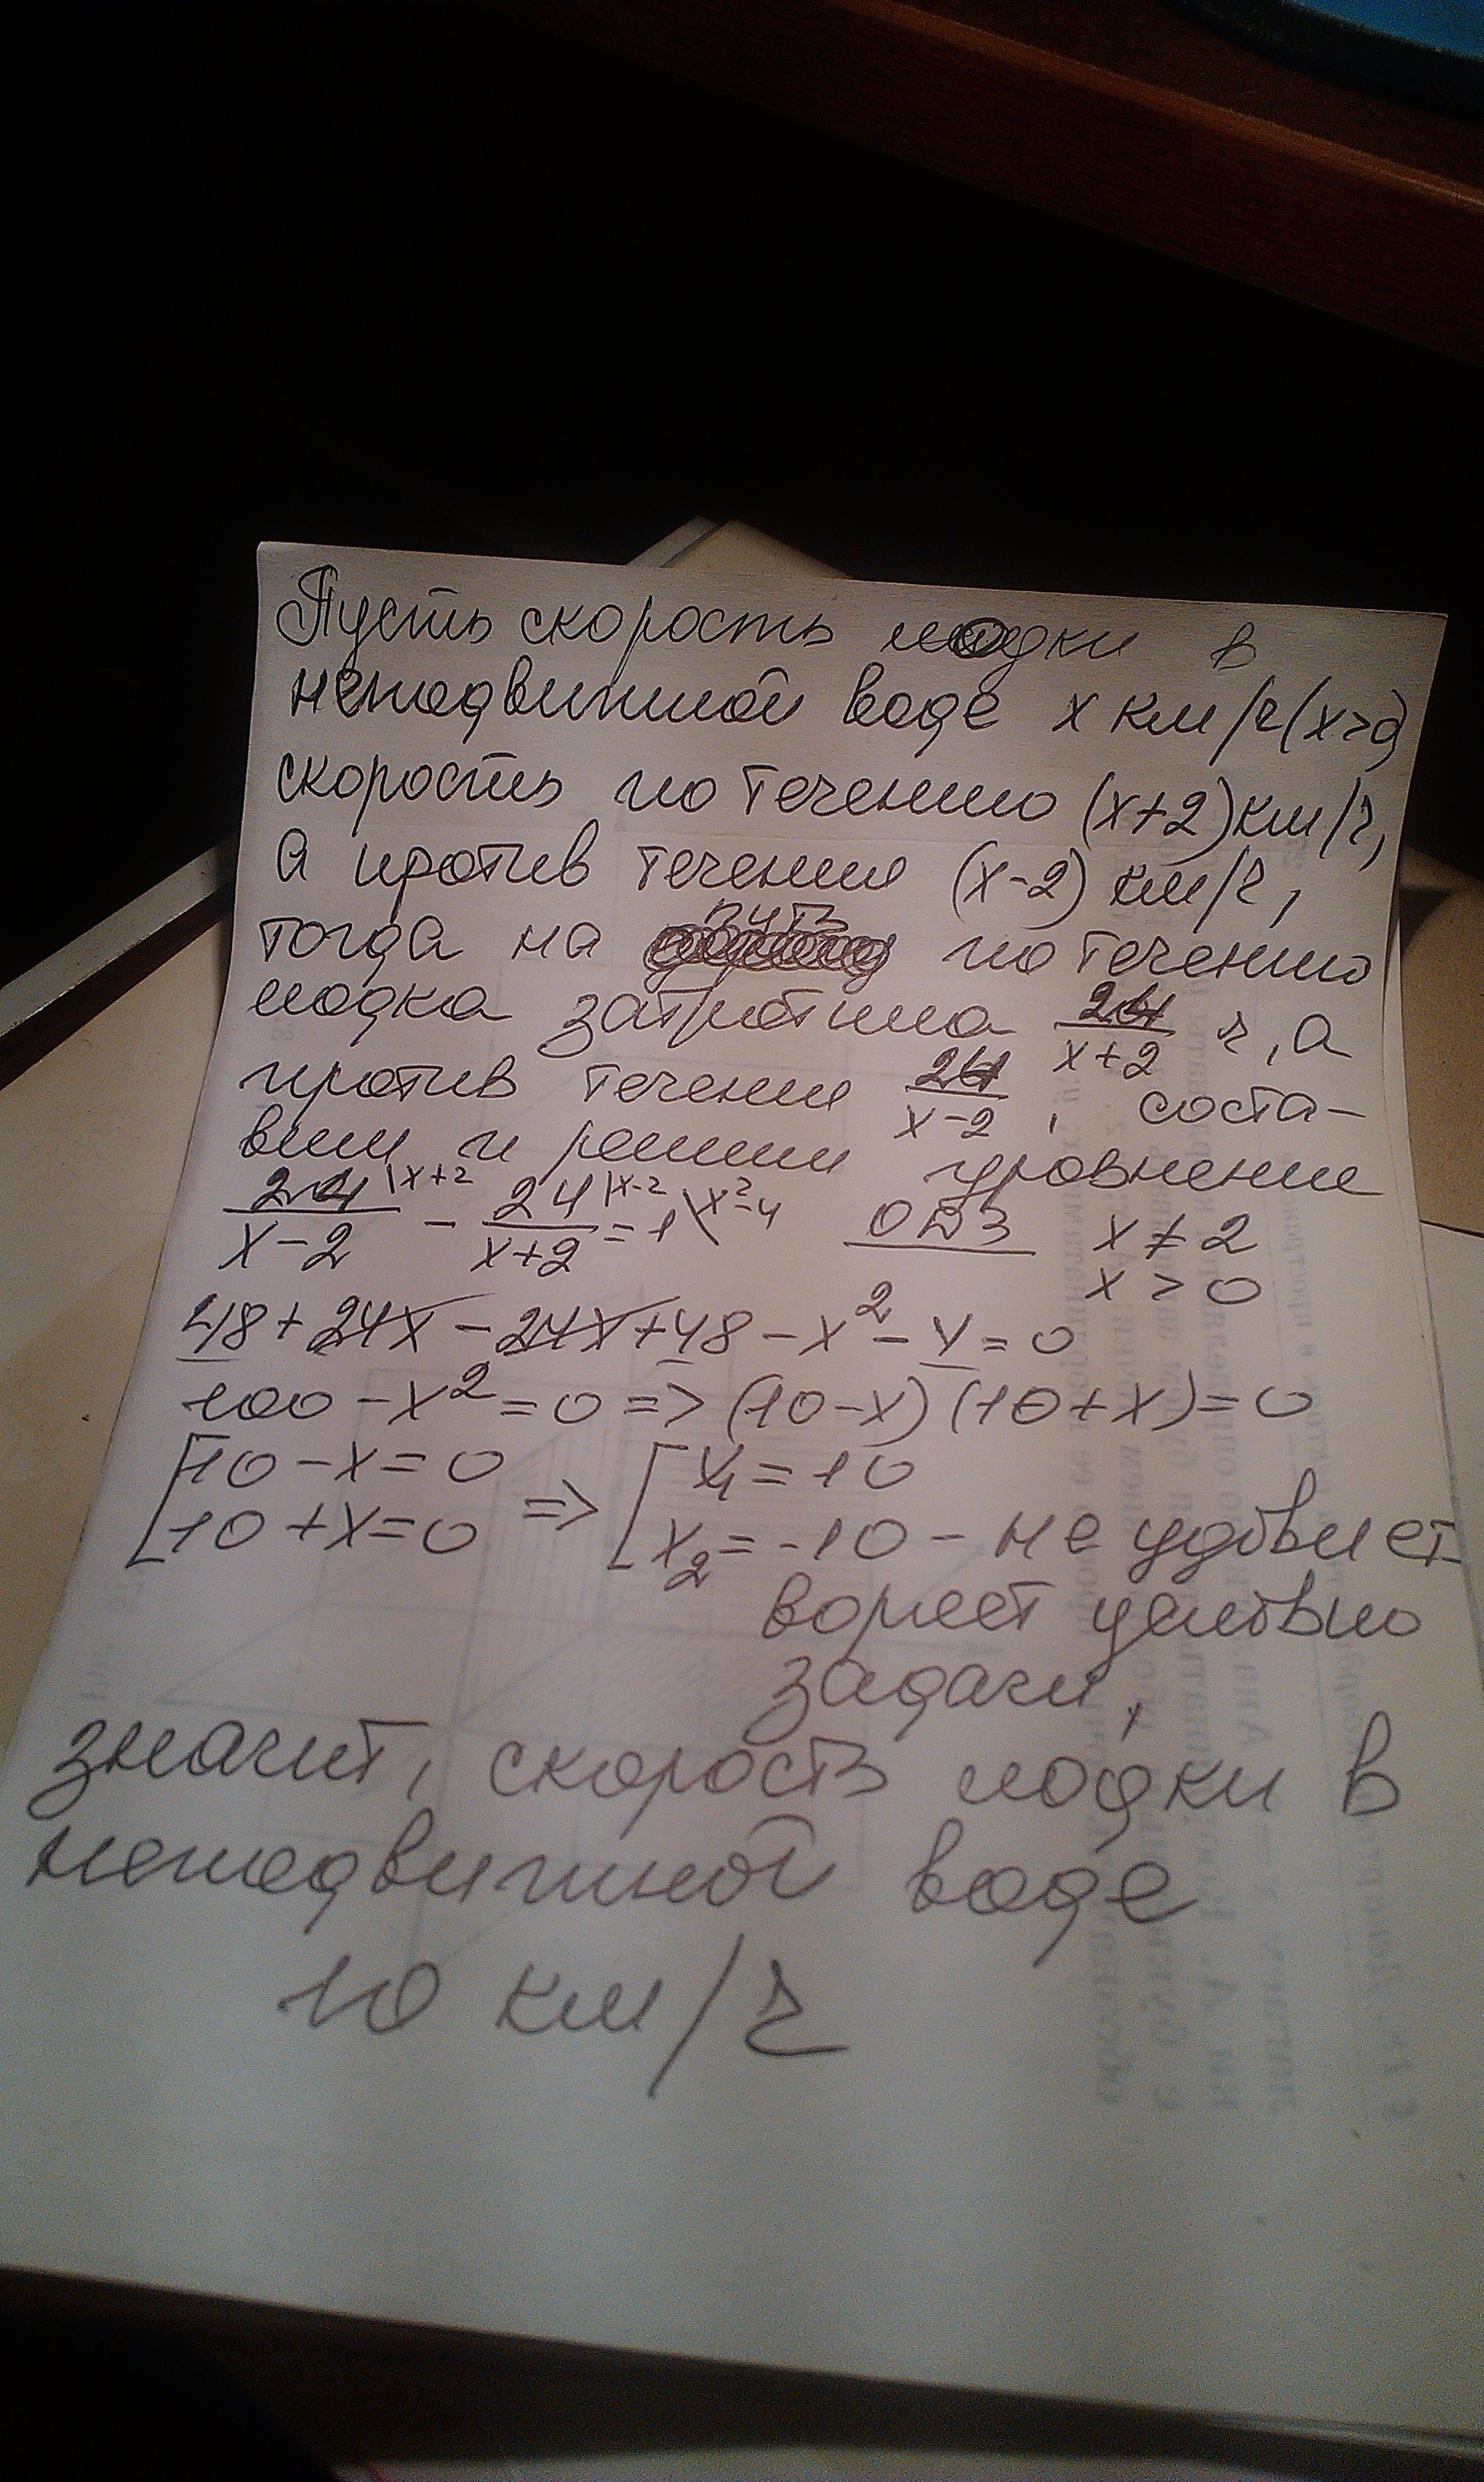 Пусть скорость лодки в
неподвижной воде x км/ч (x>0)
скорость по течению (x+2) км/ч,
а против течения (x-2) км/ч,
тогда на путь по течению
лодка затратила 24/(x+2) ч, а
против течения 24/(x-2), соста-
вим и решим уравнение
24/(x-2) \x+2 - 24/(x+2) \x-2 = 1 \x²-4 ОДЗ x ≠ 2
x > 0
48 + 24x - 24x + 48 - x² - 4 = 0
100 - x² = 0 => (10-x)(10+x) = 0
[10 - x = 0 => [x₁ = 10
[10 + x = 0 [x₂ = -10 - не удовлет
воряет условию
задачи,
значит, скорость лодки в
неподвижной воде
10 км/ч